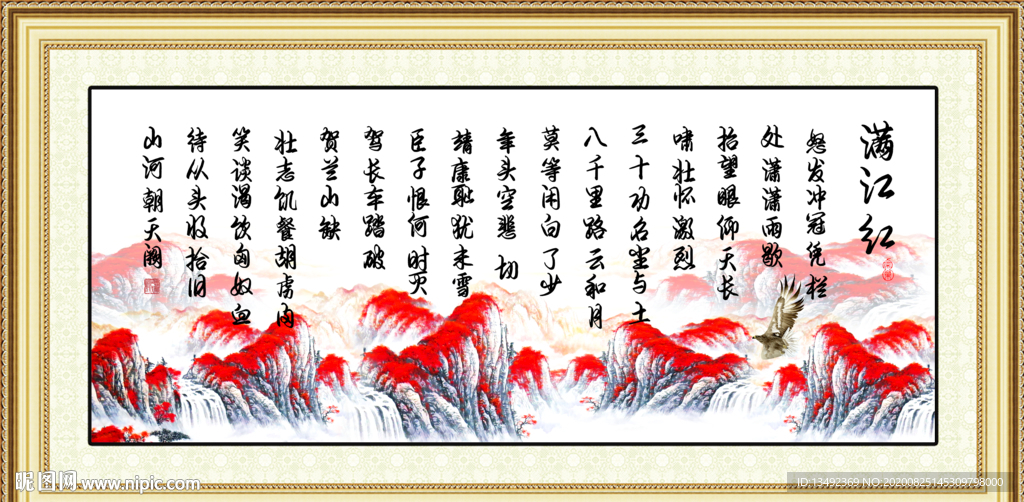 满江红
怒发冲冠凭栏
处潇潇雨歇
抬望眼仰天长
啸壮怀激烈
三十功名尘与土
八千里路云和月
莫等闲白了少
年头空悲切
靖康耻犹未雪
臣子恨何时灭
驾长车踏破
贺兰山缺
壮志饥餐胡虏肉
笑谈渴饮匈奴血
待从头收拾旧
山河朝天阙
昵图网 www.nipic.com
ID:13492369 NO:20200825145309798000